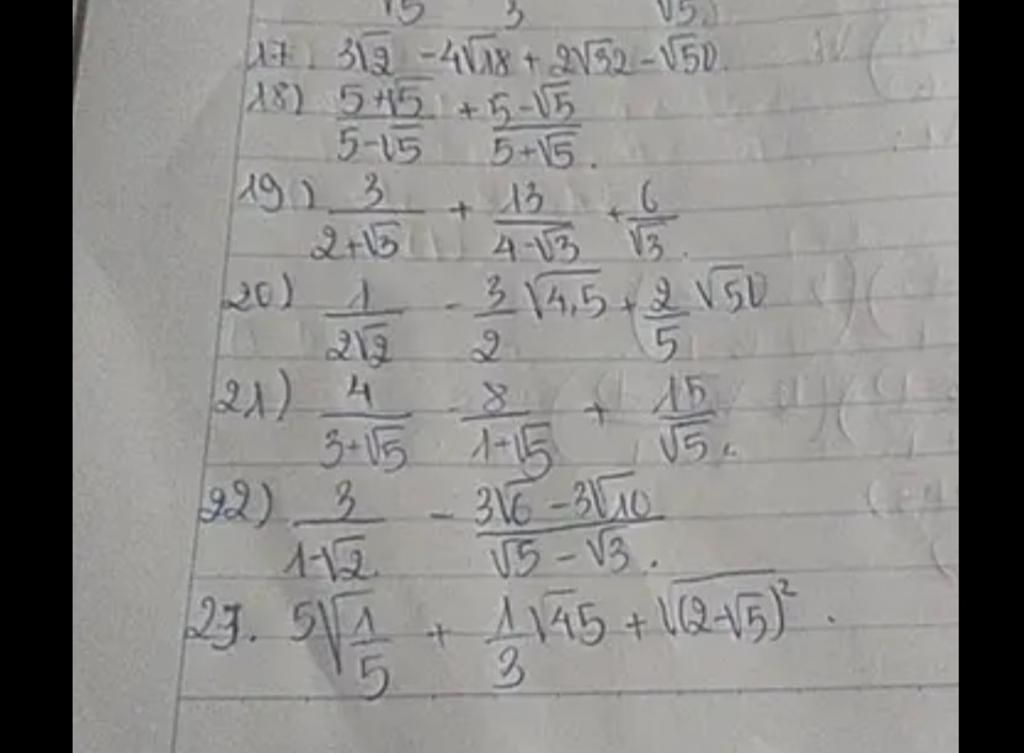 √5 3 √5.
17. 3√2 - 4√18 + 2√32 - √50.
18) (5+√5)/(5-√5) + (5-√5)/(5+√5).
19) 3/(2+√3) + 13/(4-√3) + 6/√3.
20) 1/(2√2) - 3/2 √4,5 + 2/5 √50
21) 4/(3+√5) - 8/(1+√5) + 15/√5.
22) 3/(1-√2) - (3√6 - 3√10)/(√5 - √3).
23. 5√(1/5) + 1/3 √45 + √(2-√5)².